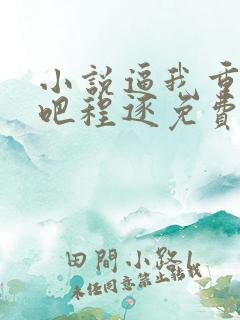 小說逼我重
吧程逐免費
田間小路1
未经同意禁止转载